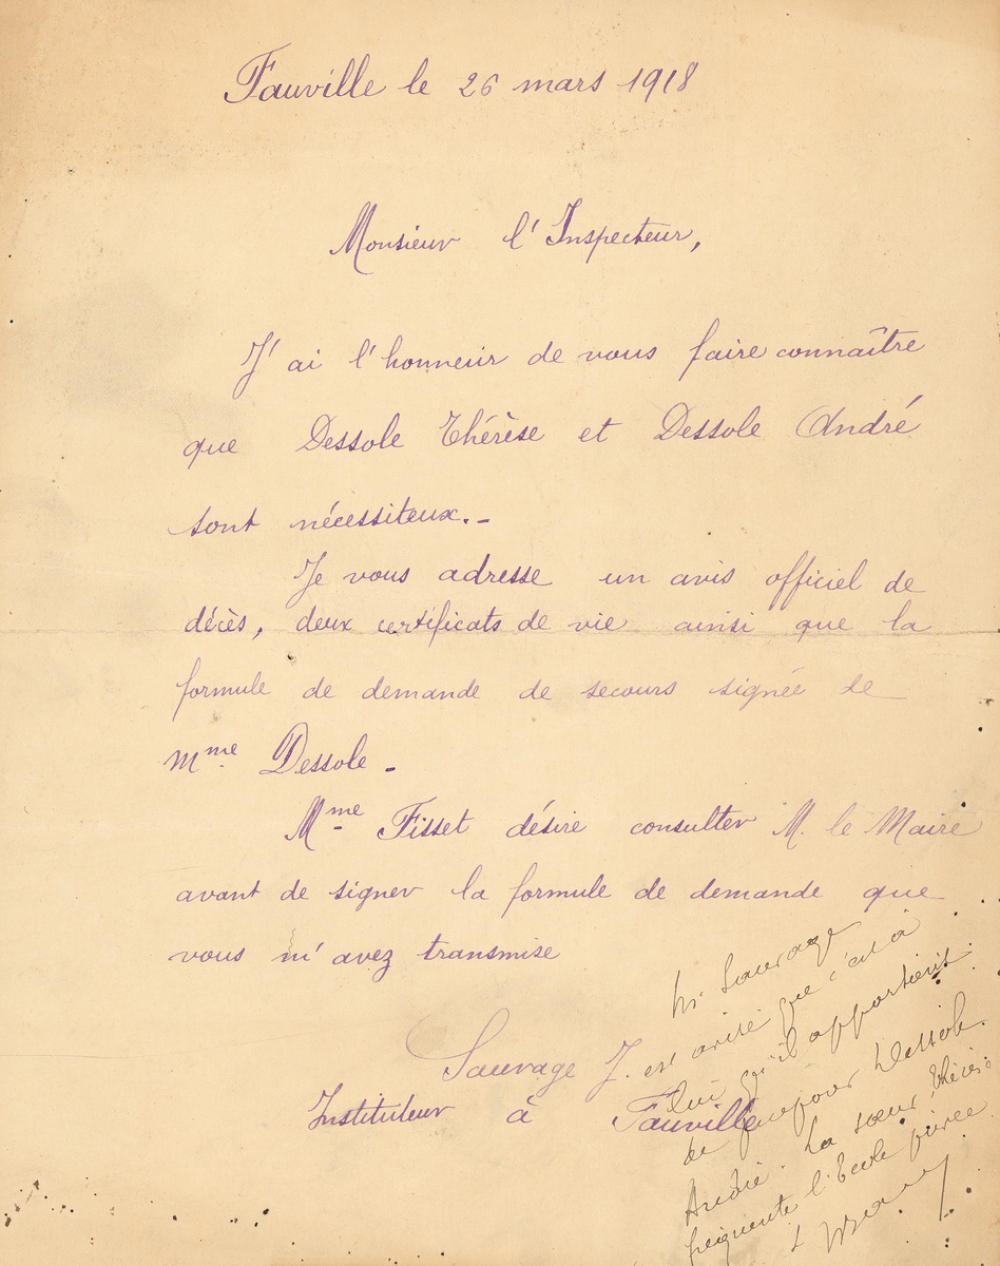 Fauville le 26 mars 1918
Monsieur l'Inspecteur,
J'ai l'honneur de vous faire connaître
que Dessole Thérèse et Dessole André
sont nécessiteux.-
Je vous adresse un avis officiel de
décès, deux certificats de vie ainsi que la
formule de demande de secours signée de
Mme Dessole -
Mme Fisset désire consulter M. le Maire
avant de signer la formule de demande que
vous m'avez transmise
Sauvage J.
Instituteur à Fauville
M. Sauvage
est avisé que c'est à
lui qu'il appartient
de pour Dessole
André. La sœur, Thérèse
fréquente l'Ecole privée